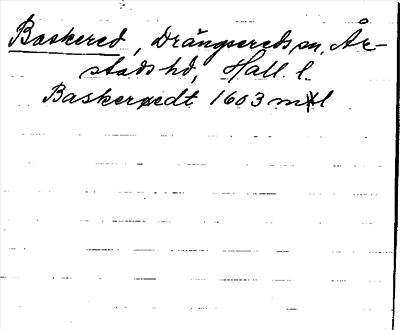 Baskered, Drängsereds sn, År-
stads hd, Hall. l.
Baskerødt 1603 mtl